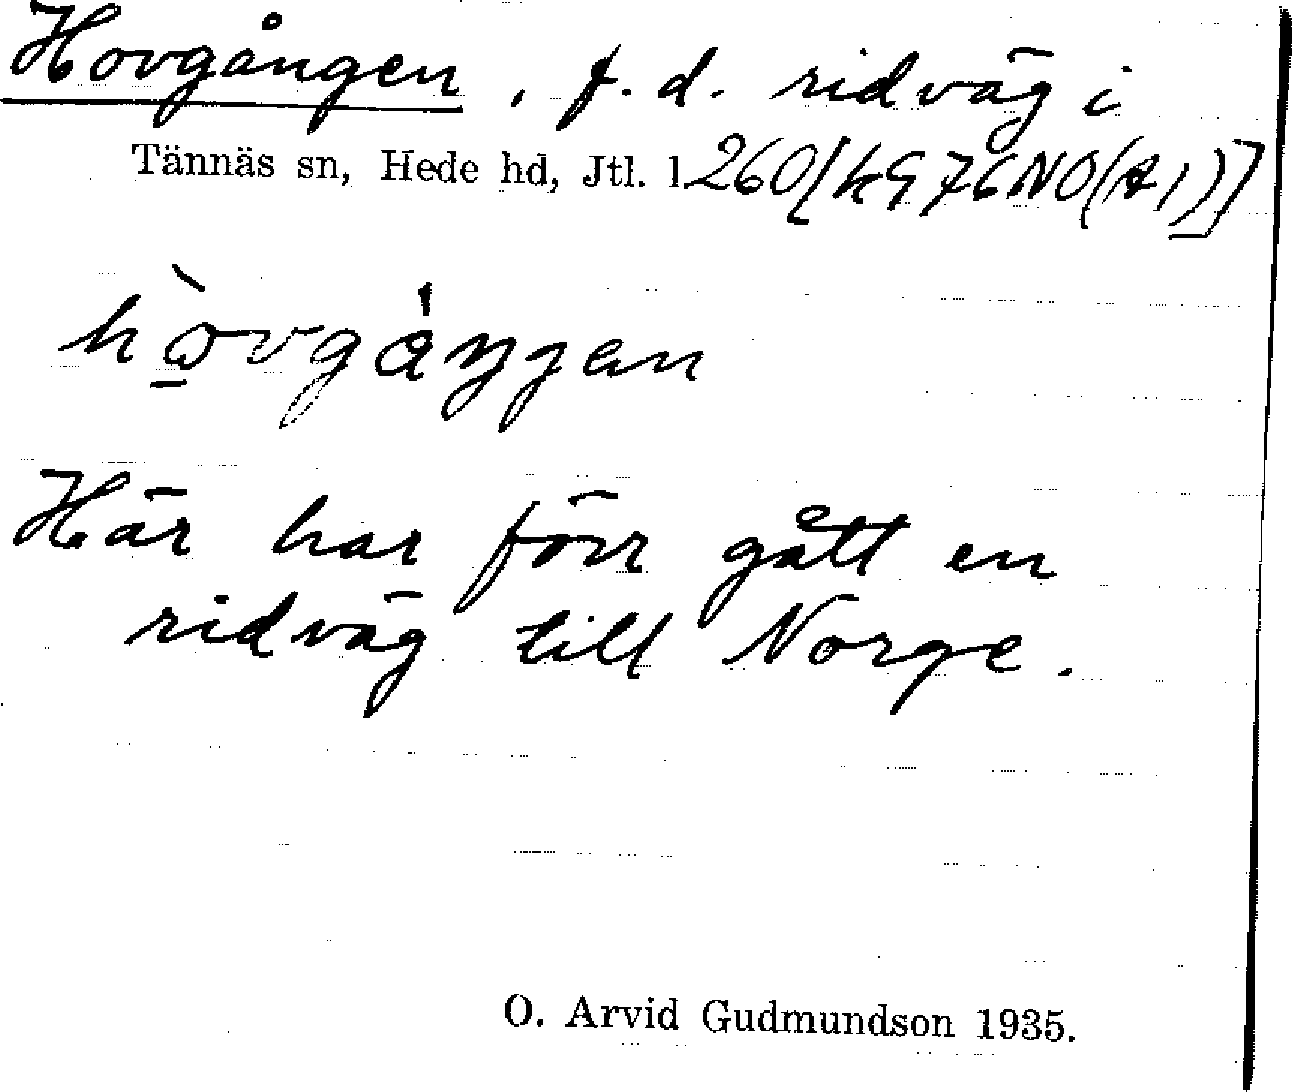 Hovgången, f.d. ridväg i
Tännäs sn, Hede hd, Jtl. l. 260
Här har förr gått en
ridväg till Norge.
O. Arvid Gudmundson 1935.